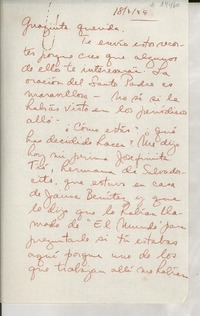 18/2/48
Graziita querida:
Te envío estos recor-
tes porque creo que algunos
de ellos te interesarán. La
oración del Santo Padre es
maravillosa - no sé si la
habrás visto en los periódicos
allá.
¿Cómo estás, qué
has decidido hacer? Me dijo
hoy mi prima Josefinita
Tió, hermana de Salvado-
cita, que estuvo en casa
de Jaime Benítez y que
le dijo que lo habían lla-
mado de "El Mundo" para
preguntarle si tú estabas
aquí porque uno de los
que trabajan allí me habían